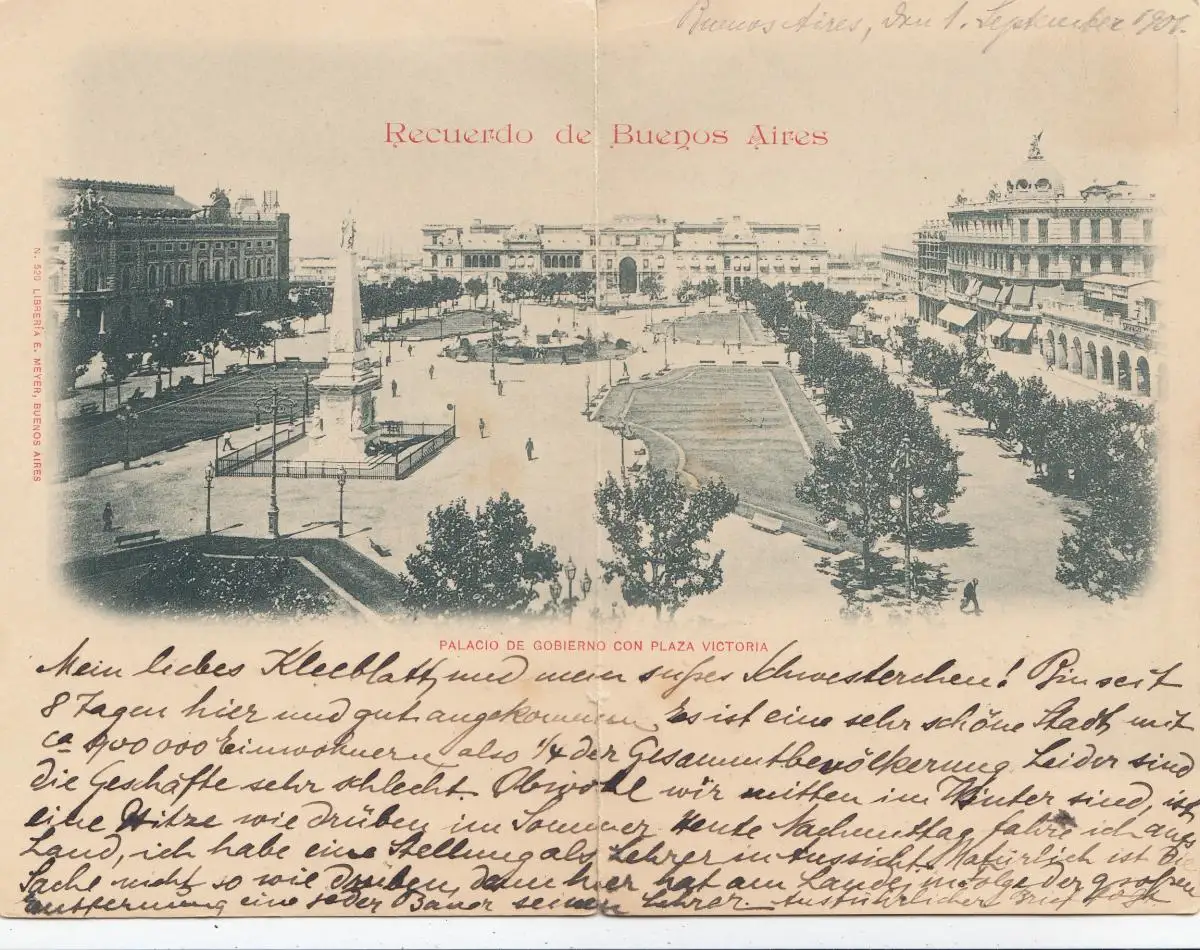 Buenos Aires, den 1. September 1901.
Recuerdo de Buenos Aires
N. 520 LIBRERÍA E. MEYER, BUENOS AIRES
PALACIO DE GOBIERNO CON PLAZA VICTORIA
Mein liebes Kleeblatt, und mein süßes Schwesterchen! Bin seit
8 Tagen hier und gut angekommen. Es ist eine sehr schöne Stadt mit
ca 000 Einwohnern also 1/4 der Gesammtbevölkerung Leider sind
die Geschäfte sehr schlecht. Obwohl wir mitten im Winter sind, ist
eine Hitze wie drüben im Sommer Heute Nachmittag fahre ich aufs
Land, ich habe eine Stellung als Lehrer in Aussicht. Natürlich ist die
Sache nicht so wie drüben, denn hier hat am Lande infolge der großen
Entfernung eine jeder Bauer seinen Lehrer. Ausführlicher Brief folgt